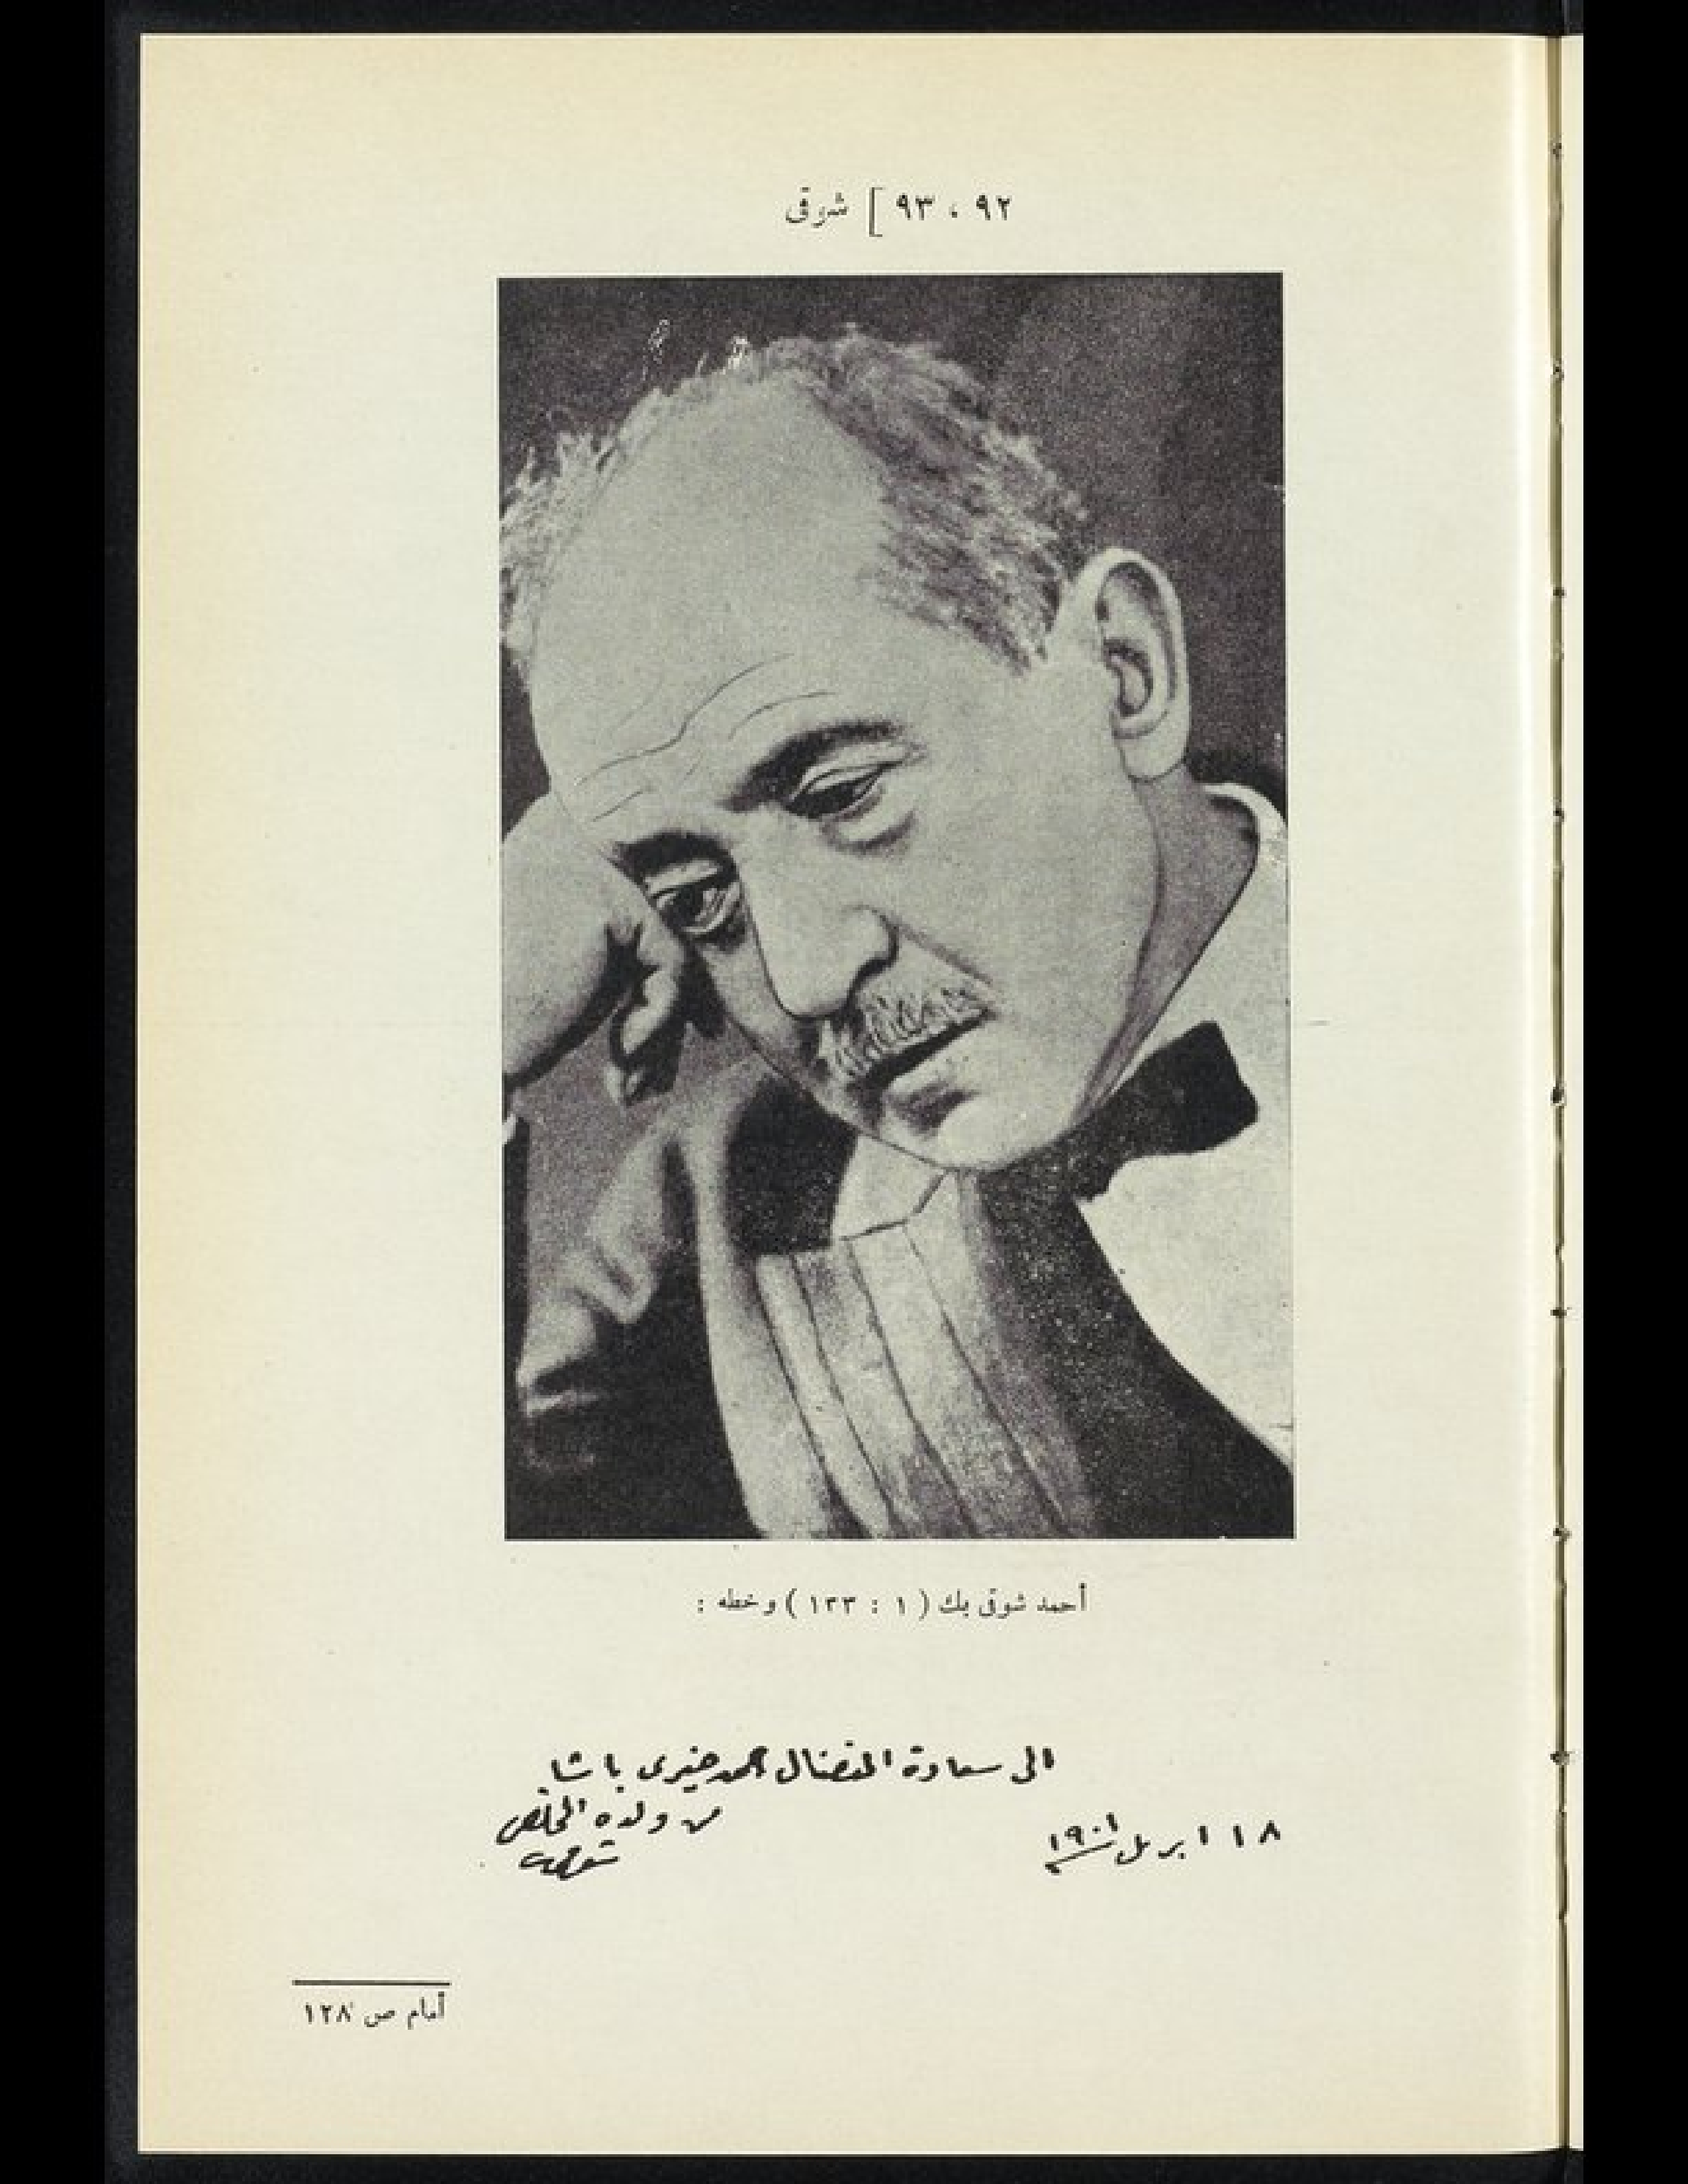 ٩٢ ، ٩٣ ] شوقى
أحمد شوقى بك ( ١ : ١٣٣ ) وخطه :
الى سعادة المفضال احمد خيرى باشا
من ولده المخلص
١٨ ابريل ١٩٠١
شوقى
أمام ص ١٢٨